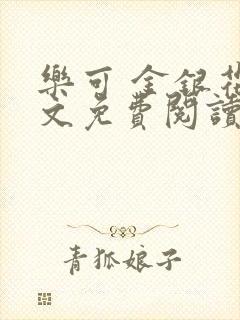 樂可 金銀花
文免費閱讀
青狐娘子